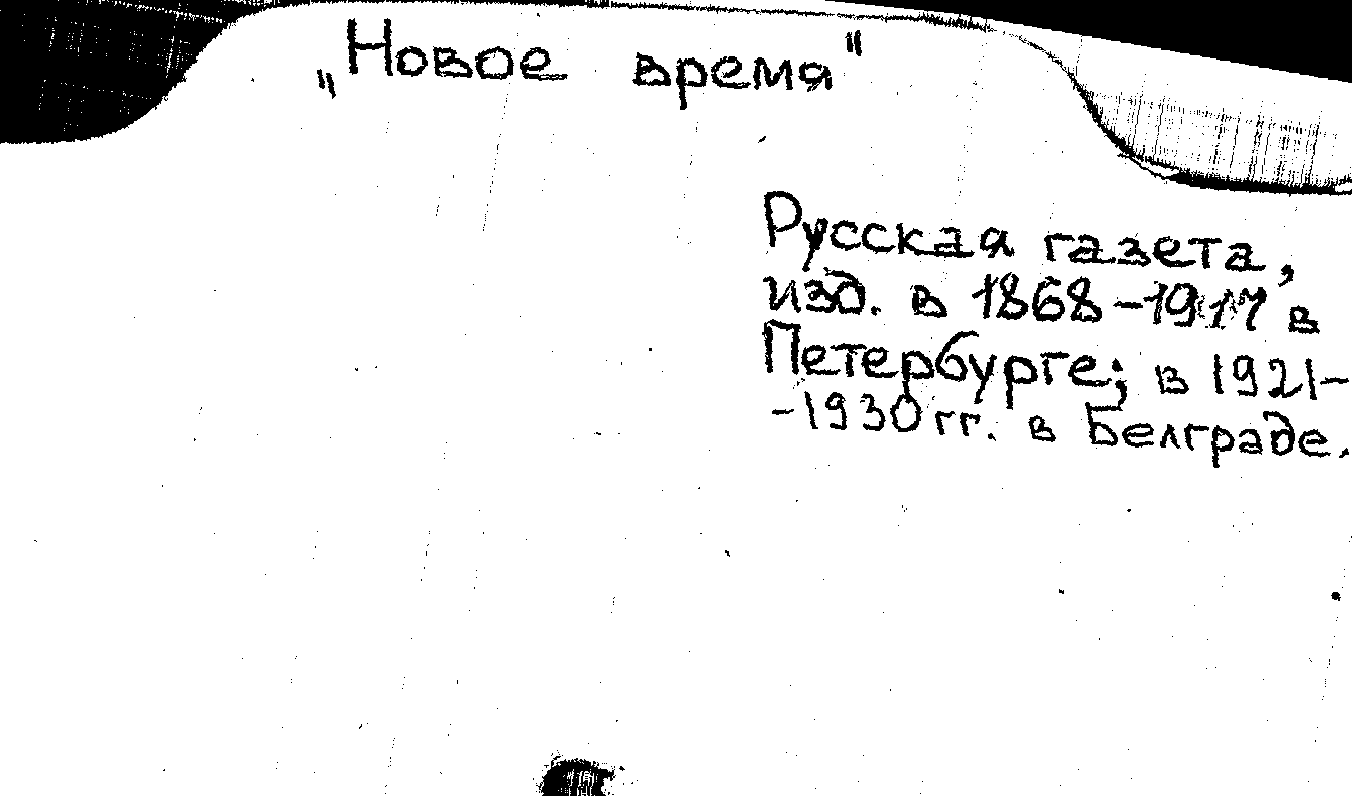 „Новое время"
Русская газета,
изд. в 1868-1917 в
Петербурге; в 1921-
-1930 гг. в Белграде.